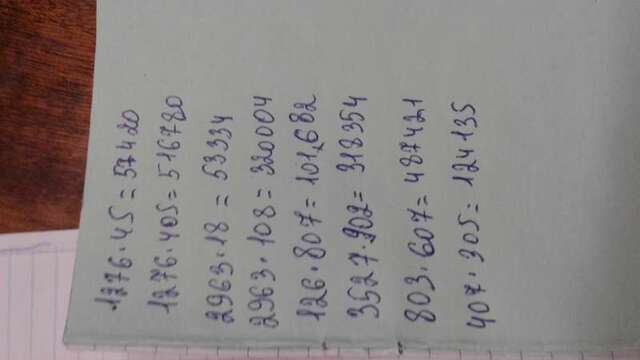 1276·45=57420
1276·405=516780
2963·18=53334
2963·108=320004
126·807=101682
3527·902=318354
803·607=487421
407·305=124135